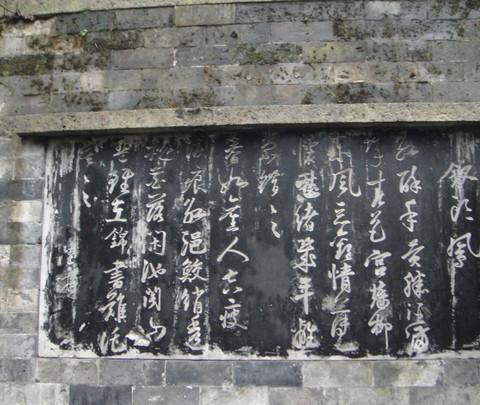 釵頭鳳
紅酥手黄縢酒滿
城春色宮牆柳
東風惡歡情薄一
懷愁緒幾年離
索錯々々
春如舊人空瘦
淚痕紅浥鮫綃透
桃花落閒池閣山
盟雖在錦書難託
莫々々